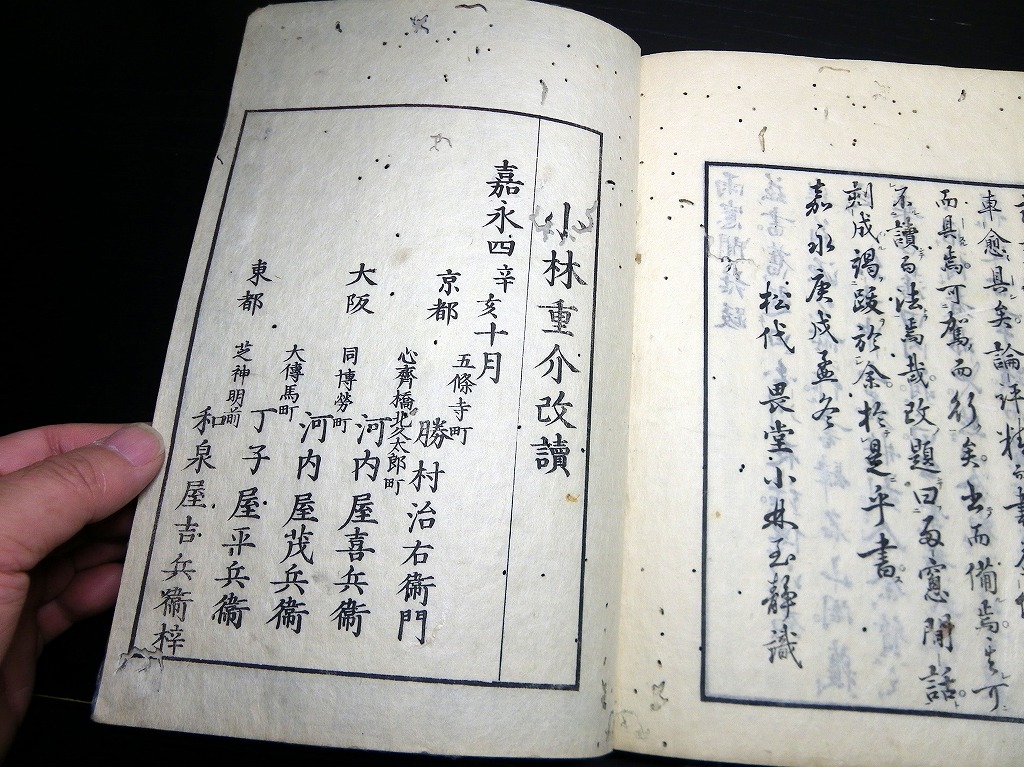 車愈具矣論評精
而具焉可駕而行矣書而備焉豈可
不讀而法焉哉改題曰雨窓閒話
刻成謁跋於余於是乎書
嘉永庚戌孟冬
松代 畏堂小林玉靜識
小林重介改讀
嘉永四辛亥十月
京都 五條寺町 勝村治右衞門
大阪 心齋橋北太郎町 河内屋喜兵衞
同博勞町 河内屋茂兵衞
東都 大傳馬町 丁子屋平兵衞
芝神明前 和泉屋吉兵衞梓